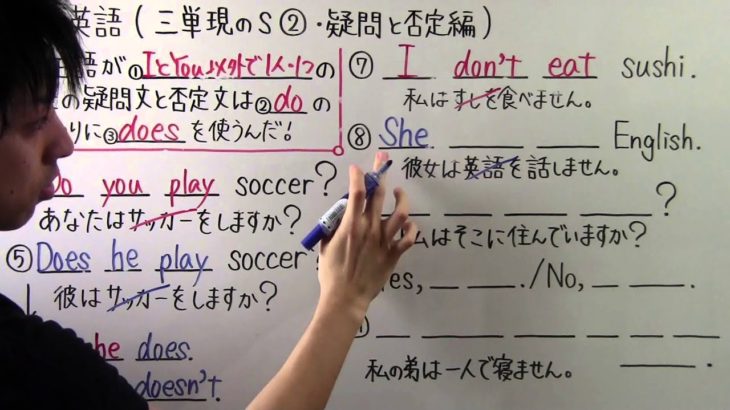 英語(三単現のS②・疑問と否定編)
語がIとYou以外で1人・1つの
の疑問文と否定文は②doの
りに③doesを使うんだ!
you play soccer?
あなたはサッカーをしますか?
⑤Does he play soccer?
彼はサッカーをしますか?
he does.
doesn't.
⑦ I don't eat sushi.
私はすしを食べません。
⑧ She ____ ____ English.
彼女は英語を話しません。
____ ____ ____ ____?
はそこに住んでいますか?
es, __ ____./No, __ ____.
____ ____ ____ ____ ____ ____
____.
私の弟は一人で寝ません。